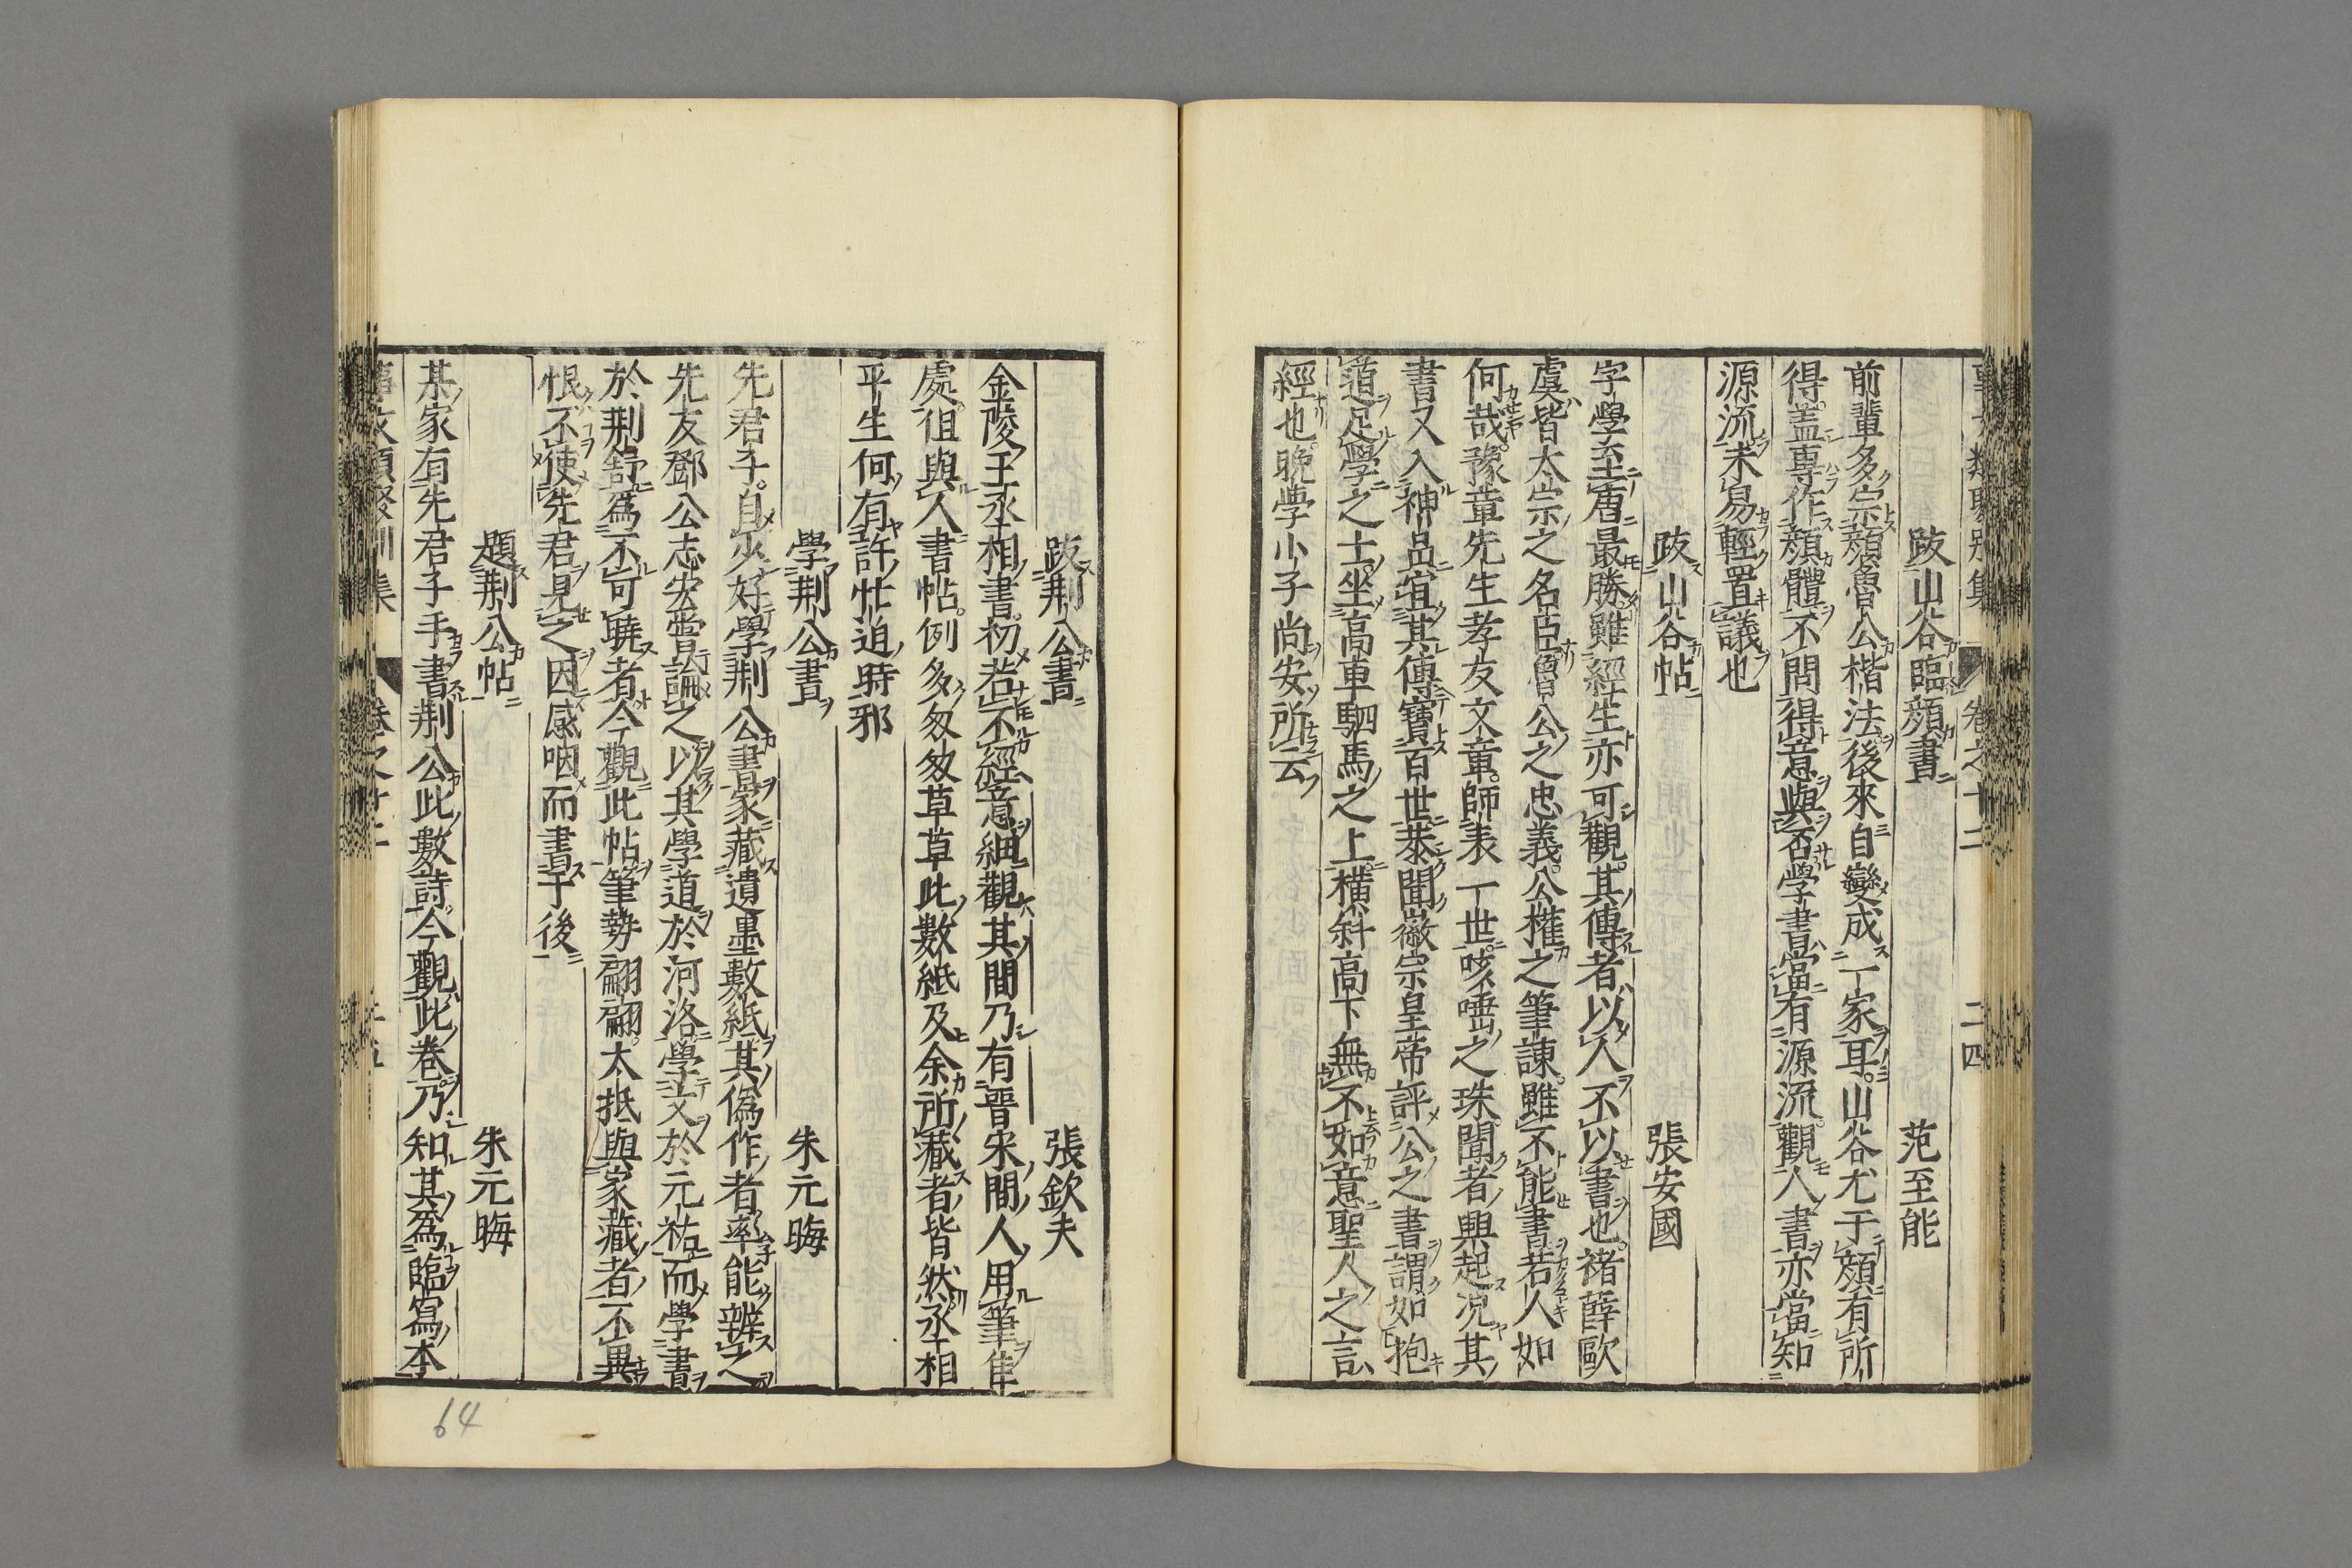 事文類聚別集 卷之十二 二四
跋山谷臨顔書 范至能
前輩多宗顔魯公楷法後來自變成一家耳山谷尤于顔有所
得蓋專作顔體不問得意與否學書當有源流觀人書亦當知
源流未易輕置議也
跋山谷帖 張安國
字學至唐最勝雖經生亦可觀其傳者以人不以書也褚薛歐
虞皆太宗之名臣魯公之忠義公權之筆諫雖不能書若人如
何哉豫章先生孝友文章師表一世咳唾之珠聞者興起况其
書又入神品宜其傳寶百世恭聞徽宗皇帝評公之書謂如抱
道足學之士坐高車駟馬之上横斜高下無不如意聖人之言
經也晚学小子尚安所云
跋荆公書 張欽夫
金陵王丞相書初若不經意細觀其間乃有晋宋間人用筆隹
處徂與人書帖例多匆匆草草此數紙及余所藏者皆然丞相
平生何有許忙迫時邪
學荆公書 朱元晦
先君子自少好學荆公書家藏遺墨數紙其僞作者率能辨之
先友鄧公志宏嘗論之以其學道於河洛學文於元祐而學書
於荆舒爲不可曉者今觀此帖筆勢翩翩太抵與家藏者不異
恨不使先君見之因感咽而書于後
題荆公帖 朱元晦
某家有先君子手書荆公此數詩今觀此卷乃知其爲臨寫本
事文類聚別集 卷之十二 二五
64